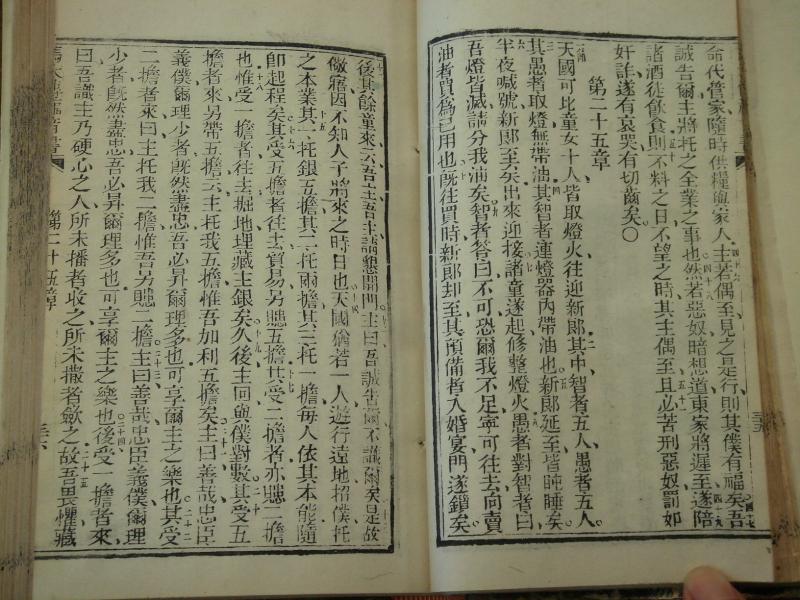 命代管家隨時供糧與家人主若偶至見之是行則其僕有福矣吾
誠告爾主將托之全業之事也然若惡奴暗想道東家將遲至遂陪
諸酒徒飲食則不料之日不望之時其主偶至且必苦刑惡奴罰如
奸詐遂有哀哭有切齒矣〇
第二十五章
天國可比童女十人皆取燈火往迎新郎其中智者五人愚者五人
其愚者取燈無帶油其智者連燈器內帶油也新郎延至皆盹睡矣
半夜喊號新郎至矣出來迎接諸童遂起修整燈火愚者對智者曰
吾燈皆滅請分我油矣智者答曰不可恐爾我不足寧可往去向賣
油者買為己用也既往買時新郎却至其預備者入婚宴門遂鎖矣
後其餘童來云吾主吾主請懇開門主曰吾誠告爾不識爾矣是故
儆寤因不知人子將來之時日也天國猶若一人遊行遠地招僕托
之本業其一托銀五擔其二托兩擔其三托一擔每人依其本能隨
卽起程矣其受五擔者往去貿易另賺五擔其受二擔者亦賺二擔
也惟受一擔者往掘地理藏主銀矣久後主回與僕對數其受五
擔者來另帶五擔云主托我五擔惟吾加利五擔矣主曰善哉忠臣
義僕爾理少者既然盡忠吾必昇爾理多也可享爾主之樂也其受
二擔者來曰主托我二擔惟吾另賺二擔主曰善哉忠臣義僕爾理
少者既然盡忠吾必昇爾理多也可享爾主之樂也後受一擔者來
曰吾識主乃硬心之人所未播者收之所未撒者斂之故吾畏懼藏
第二十五章
三六